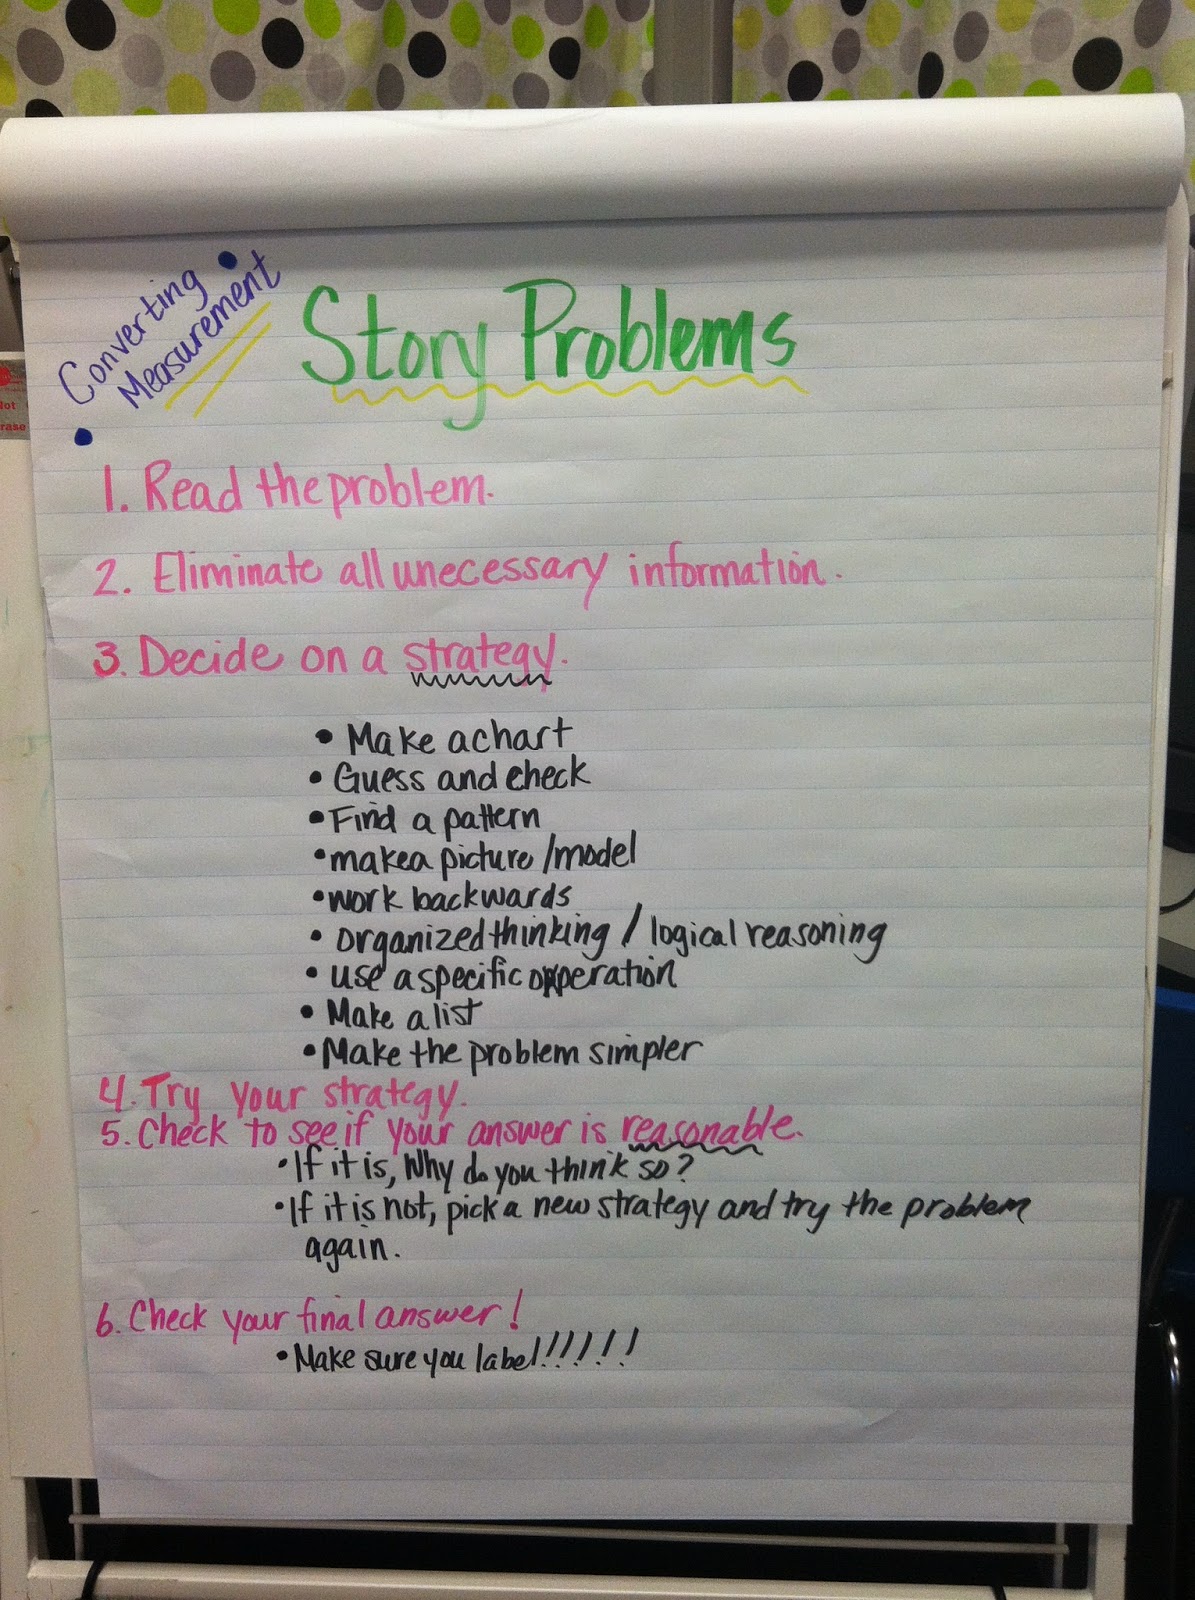 Converting
Measurement
Story Problems
1. Read the problem.
2. Eliminate all unecessary information.
3. Decide on a strategy.
• Make a chart
• Guess and check
• Find a pattern
• make a picture/model
• work backwards
• organized thinking / logical reasoning
• use a specific operation
• Make a list
• Make the problem simpler
4. Try your strategy.
5. Check to see if your answer is reasonable.
• If it is, Why do you think so?
• If it is not, pick a new strategy and try the problem
again.
6. Check your final answer!
• Make sure you label!!!!!!